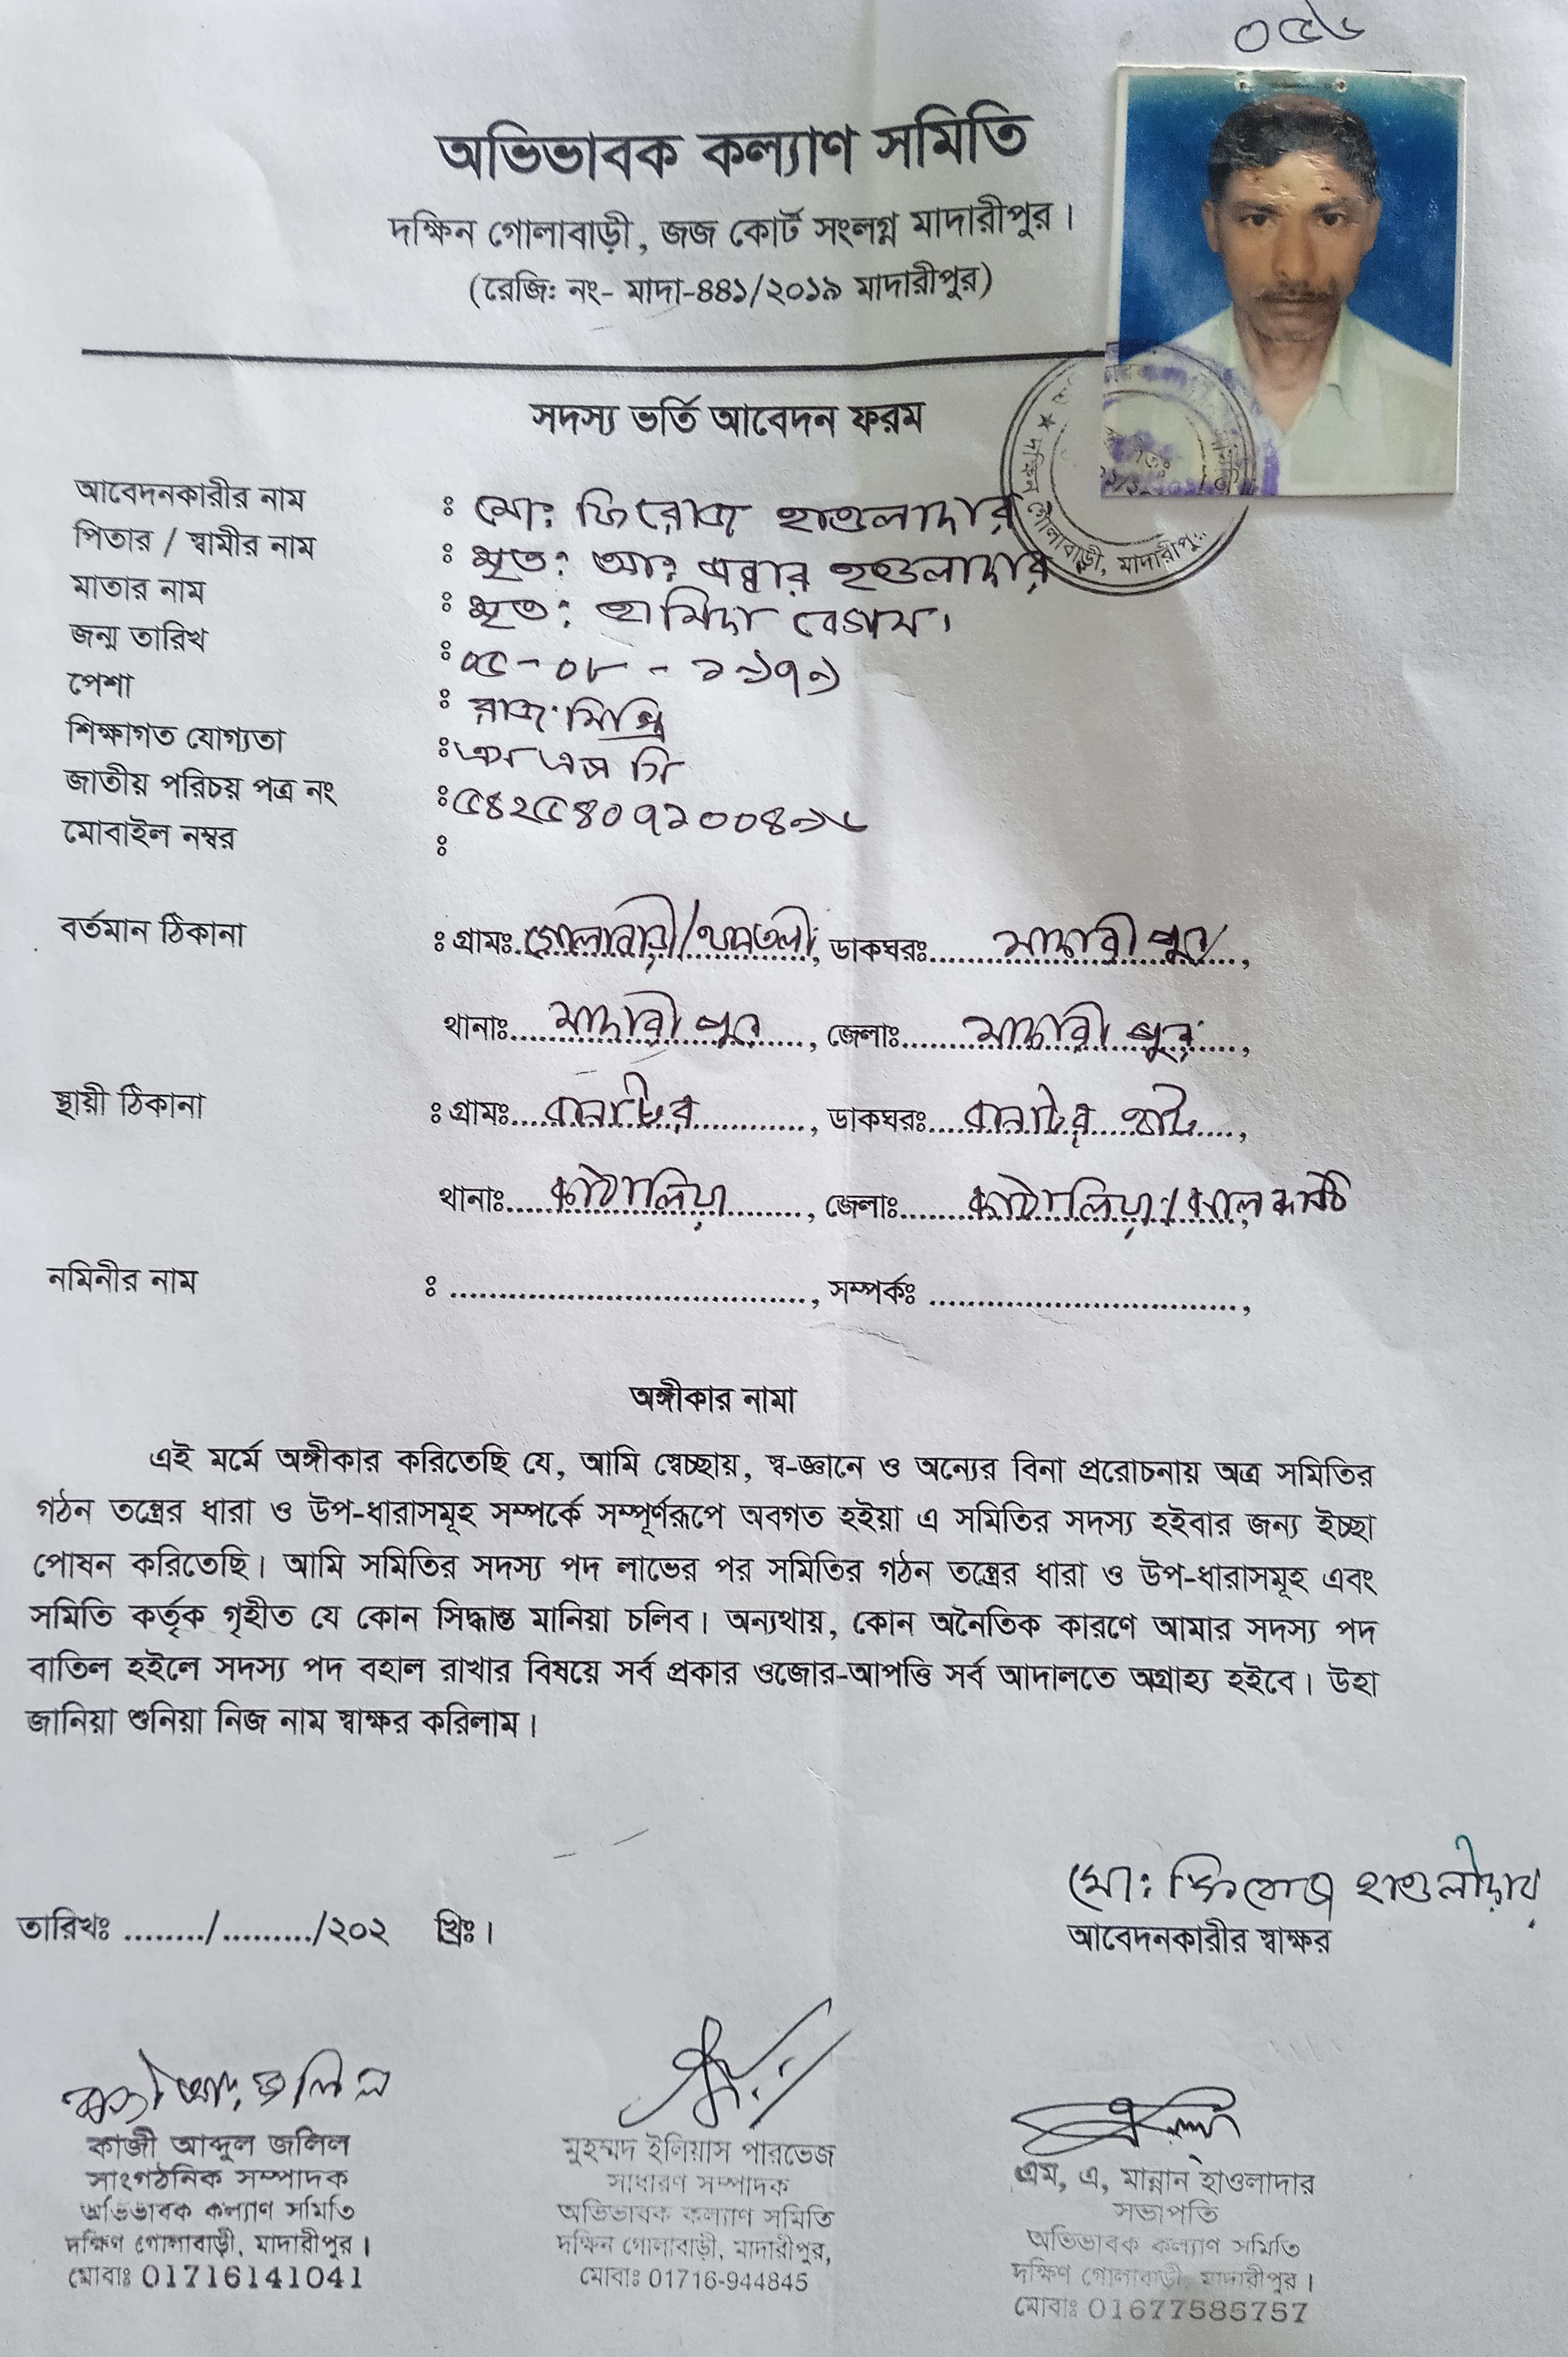 ০৫৬
অভিভাবক কল্যাণ সমিতি
দক্ষিন গোলাবাড়ী, জজ কোর্ট সংলগ্ন মাদারীপুর।
(রেজিঃ নং- মাদা-৪৪১/২০১৯ মাদারীপুর)
সদস্য ভর্তি আবেদন ফরম
আবেদনকারীর নাম : মোঃ ফিরোজ হাওলাদার
পিতার / স্বামীর নাম : মৃতঃ আঃ জব্বার হাওলাদার
মাতার নাম : মৃতঃ হামিদা বেগম।
জন্ম তারিখ : ০৫-০৮-১৯৭৯
পেশা : রাজ মিস্ত্রি
শিক্ষাগত যোগ্যতা : এস এস সি
জাতীয় পরিচয় পত্র নং : ৫৪২৫৪০৭২০০৪৯৬
মোবাইল নম্বর :
বর্তমান ঠিকানা : গ্রামঃ গোলাবাড়ী/, ডাকঘরঃ মাদারীপুর,
থানাঃ মাদারীপুর, জেলাঃ মাদারীপুর,
স্থায়ী ঠিকানা : গ্রামঃ, ডাকঘরঃ হাট,
থানাঃ কাঠালিয়া, জেলাঃ কাঠালিয়া/ঝালকাঠি
নমিনীর নাম : ...................................., সম্পর্কঃ ................................,
অঙ্গীকার নামা
এই মর্মে অঙ্গীকার করিতেছি যে, আমি স্বেচ্ছায়, স্ব-জ্ঞানে ও অন্যের বিনা প্ররোচনায় অত্র সমিতির
গঠন তন্ত্রের ধারা ও উপ-ধারাসমূহ সম্পর্কে সম্পূর্ণরূপে অবগত হইয়া এ সমিতির সদস্য হইবার জন্য ইচ্ছা
পোষন করিতেছি। আমি সমিতির সদস্য পদ লাভের পর সমিতির গঠন তন্ত্রের ধারা ও উপ-ধারাসমূহ এবং
সমিতি কর্তৃক গৃহীত যে কোন সিদ্ধান্ত মানিয়া চলিব। অন্যথায়, কোন অনৈতিক কারণে আমার সদস্য পদ
বাতিল হইলে সদস্য পদ বহাল রাখার বিষয়ে সর্ব প্রকার ওজোর-আপত্তি সর্ব আদালতে অগ্রাহ্য হইবে। উহা
জানিয়া শুনিয়া নিজ নাম স্বাক্ষর করিলাম।
মোঃ ফিরোজ হাওলাদার
তারিখঃ ......../........./২০২ খ্রিঃ।
আবেদনকারীর স্বাক্ষর
কাজী আঃ জলিল
কাজী আব্দুল জলিল
সাংগঠনিক সম্পাদক
অভিভাবক কল্যাণ সমিতি
দক্ষিণ গোলাবাড়ী, মাদারীপুর।
মোবাঃ 01716141041
মুহম্মদ ইলিয়াস পারভেজ
সাধারণ সম্পাদক
অভিভাবক কল্যাণ সমিতি
দক্ষিন গোলাবাড়ী, মাদারীপুর,
মোবাঃ 01716-944845
এম, এ, মান্নান হাওলাদার
সভাপতি
অভিভাবক কল্যাণ সমিতি
দক্ষিণ গোলাবাড়ী, মাদারীপুর।
মোবাঃ 01677585757